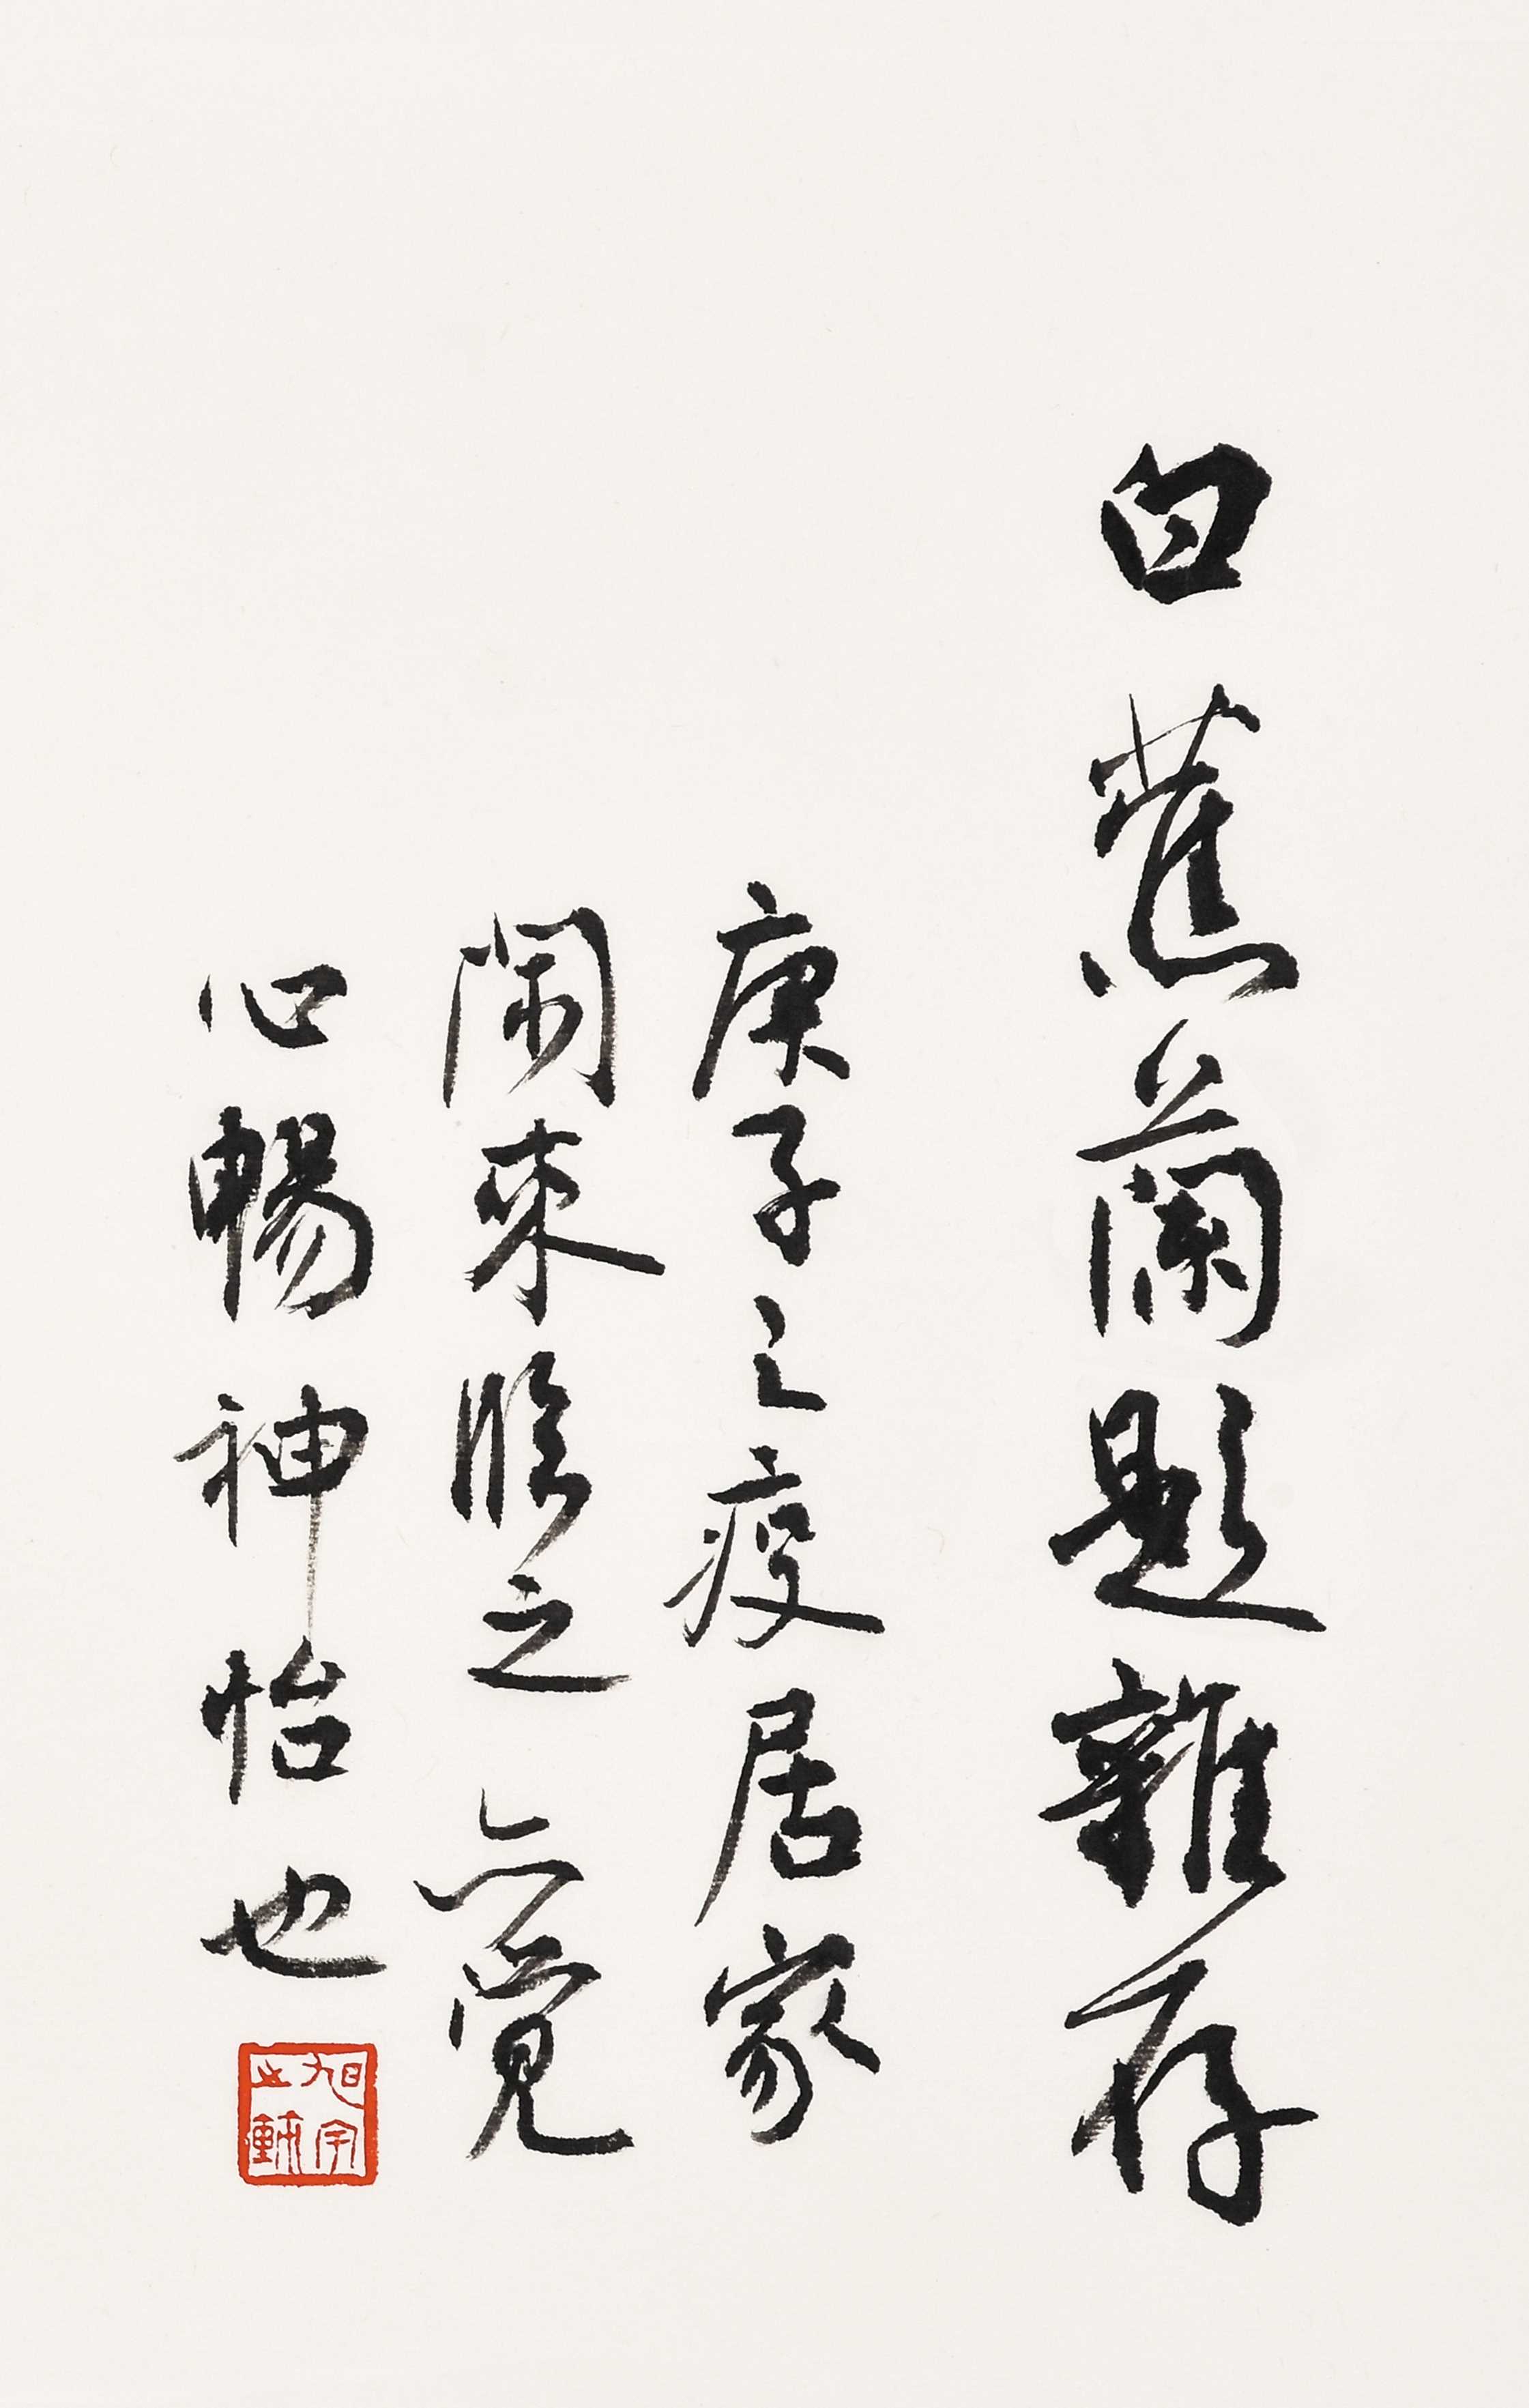 白蕉蘭題雜存
庚子之疫居家
閑來臨之亦覺
心暢神怡也
旭宇之